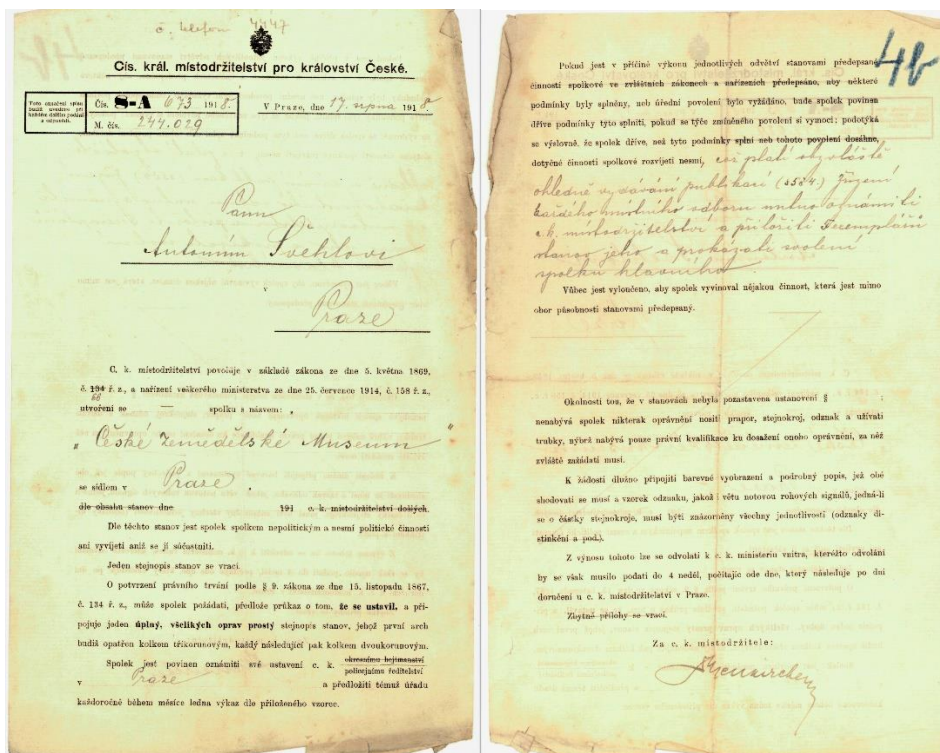 č. telefon 4447
Cís. král. místodržitelství pro království České.
Toto označení spisu
budiž uvedeno při
každém dalším podání
a odpovědi.
Čís. 8-A 673 1918.
M. čís. 244.029
V Praze, dne 17. srpna 1918.
Panu
Antonínu Švehlovi
v
Praze
C. k. místodržitelství povoluje v základě zákona ze dne 5. května 1869,
č. 134 ř. z., a nařízení veškerého ministerstva ze dne 25. července 1914, č. 158 ř. z.,
66
utvoření se — spolku s názvem: „
„České Zemědělské Museum"
se sídlem v Praze .
dle obsahu stanov dne 191 c. k. místodržitelství došlých.
Dle těchto stanov jest spolek spolkem nepolitickým a nesmí politické činnosti
ani vyvíjeti aniž se jí súčastniti.
Jeden stejnopis stanov se vrací.
O potvrzení právního trvání podle § 9. zákona ze dne 15. listopadu 1867,
č. 134 ř. z., může spolek požádati, předlože průkaz o tom, že se ustavil, a připojuje
jeden úplný, všelikých oprav prostý stejnopis stanov, jehož první arch
budiž opatřen kolkem tříkorunovým, každý následující pak kolkem dvoukorunovým.
Spolek jest povinen oznámiti své ustavení c. k. okresnímu hejtmanství
policejnímu ředitelství
v Praze a předložiti témuž úřadu
každoročně během měsíce ledna výkaz dle přiloženého vzorce.
4b
Pokud jest v příčině výkonu jednotlivých odvětví stanovami předepsané
činnosti spolkové ve zvláštních zákonech a nařízeních předepsáno, aby některé
podmínky byly splněny, neb úřední povolení bylo vyžádáno, bude spolek povinen
dříve podmínky tyto splniti, pokud se týče zmíněného povolení si vymoci; podotýká
se výslovně, že spolek dříve, než tyto podmínky splní neb tohoto povolení dosáhne,
dotyčné činnosti spolkové rozvíjeti nesmí, což platí obzvláště
ohledně vydávání publikací (§ 5 d 4) Zřízení
každého místního odboru nutno oznámiti
c. k. místodržitelství a přiložiti 5 exemplářů
stanov jeho a prokázati svolení
spolku hlavního.
Vůbec jest vyloučeno, aby spolek vyvinoval nějakou činnost, která jest mimo
obor působnosti stanovami předepsaný.
Okolností tou, že v stanovách nebyla pozastavena ustanovení § :
nenabývá spolek nikterak oprávnění nositi prapor, stejnokroj, odznak a užívati
trubky, nýbrž nabývá pouze právní kvalifikace ku dosažení onoho oprávnění, za něž
zvláště zažádati musí.
K žádosti dlužno připojiti barevné vyobrazení a podrobný popis, jež obě
shodovati se musí a vzorek odznaku, jakož i větu notovou rohových signálů, jedná-li
se o částky stejnokroje, musí býti znázorněny všechny jednotlivosti (odznaky distinkční
a pod.).
Z výnosu tohoto lze se odvolati k c. k. ministeriu vnitra, kteréžto odvolání
by se však musilo podati do 4 neděl, počítajíc ode dne, který následuje po dni
doručení u c. k. místodržitelství v Praze.
Zbytné přílohy se vrací.
Za c. k. místodržitele: